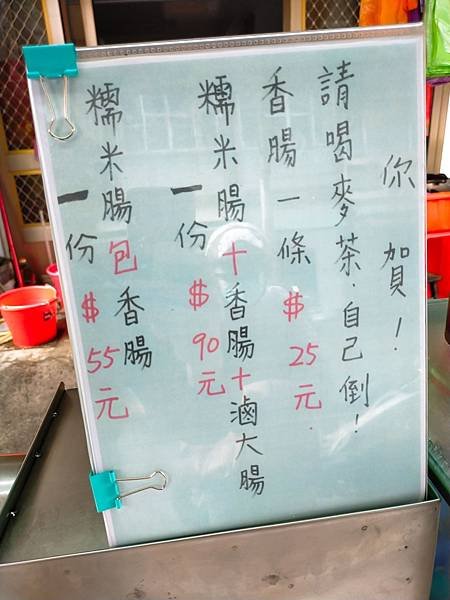 你賀！
請喝麥茶．自己倒！
香腸一條 $25元．
糯米腸+香腸+滷大腸
一份 $90元
糯米腸包香腸
一份 $55元